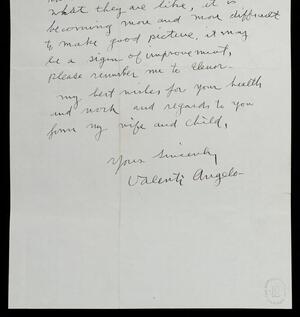 what they are like, it is
becoming more and more difficult
to make good picture, it may
be a sign of improvement,
please remember me to Elenor.
my best wishes for your health
and work and regards to you
from my wife and child,
Yours Sincerely
Valenti Angelo